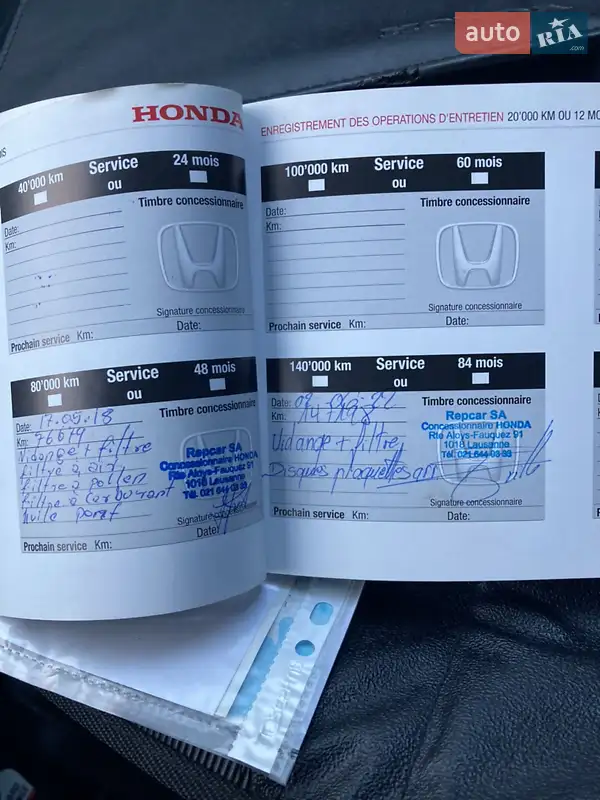 auto RIA .com
HONDA
ENREGISTREMENT DES OPERATIONS D'ENTRETIEN 20'000 KM OU 12 MO
40'000 km Service ou 24 mois
Timbre concessionnaire
Date:
Km:
Signature concessionnaire
Prochain service Km: Date:
80'000 km Service ou 48 mois
Timbre concessionnaire
Date: 17.05.18
Km: 76679
Vidange + filtre
filtre à air
filtre à pollen
filtre à carburant
huile pont
Repcar SA
Concessionnaire HONDA
Rte Aloys-Fauquez 91
1018 Lausanne
Tél. 021 644 03 83
Signature concessionnaire
Prochain service Km: Date:
100'000 km Service ou 60 mois
Timbre concessionnaire
Date:
Km:
Signature concessionnaire
Prochain service Km: Date:
140'000 km Service ou 84 mois
Timbre concessionnaire
Date:
Km:
Vidange + filtre,
Disques plaquettes arr.
Repcar SA
Concessionnaire HONDA
Rte Aloys-Fauquez 91
1018 Lausanne
Tél. 021 644 03 83
Signature concessionnaire
Prochain service Km: Date: